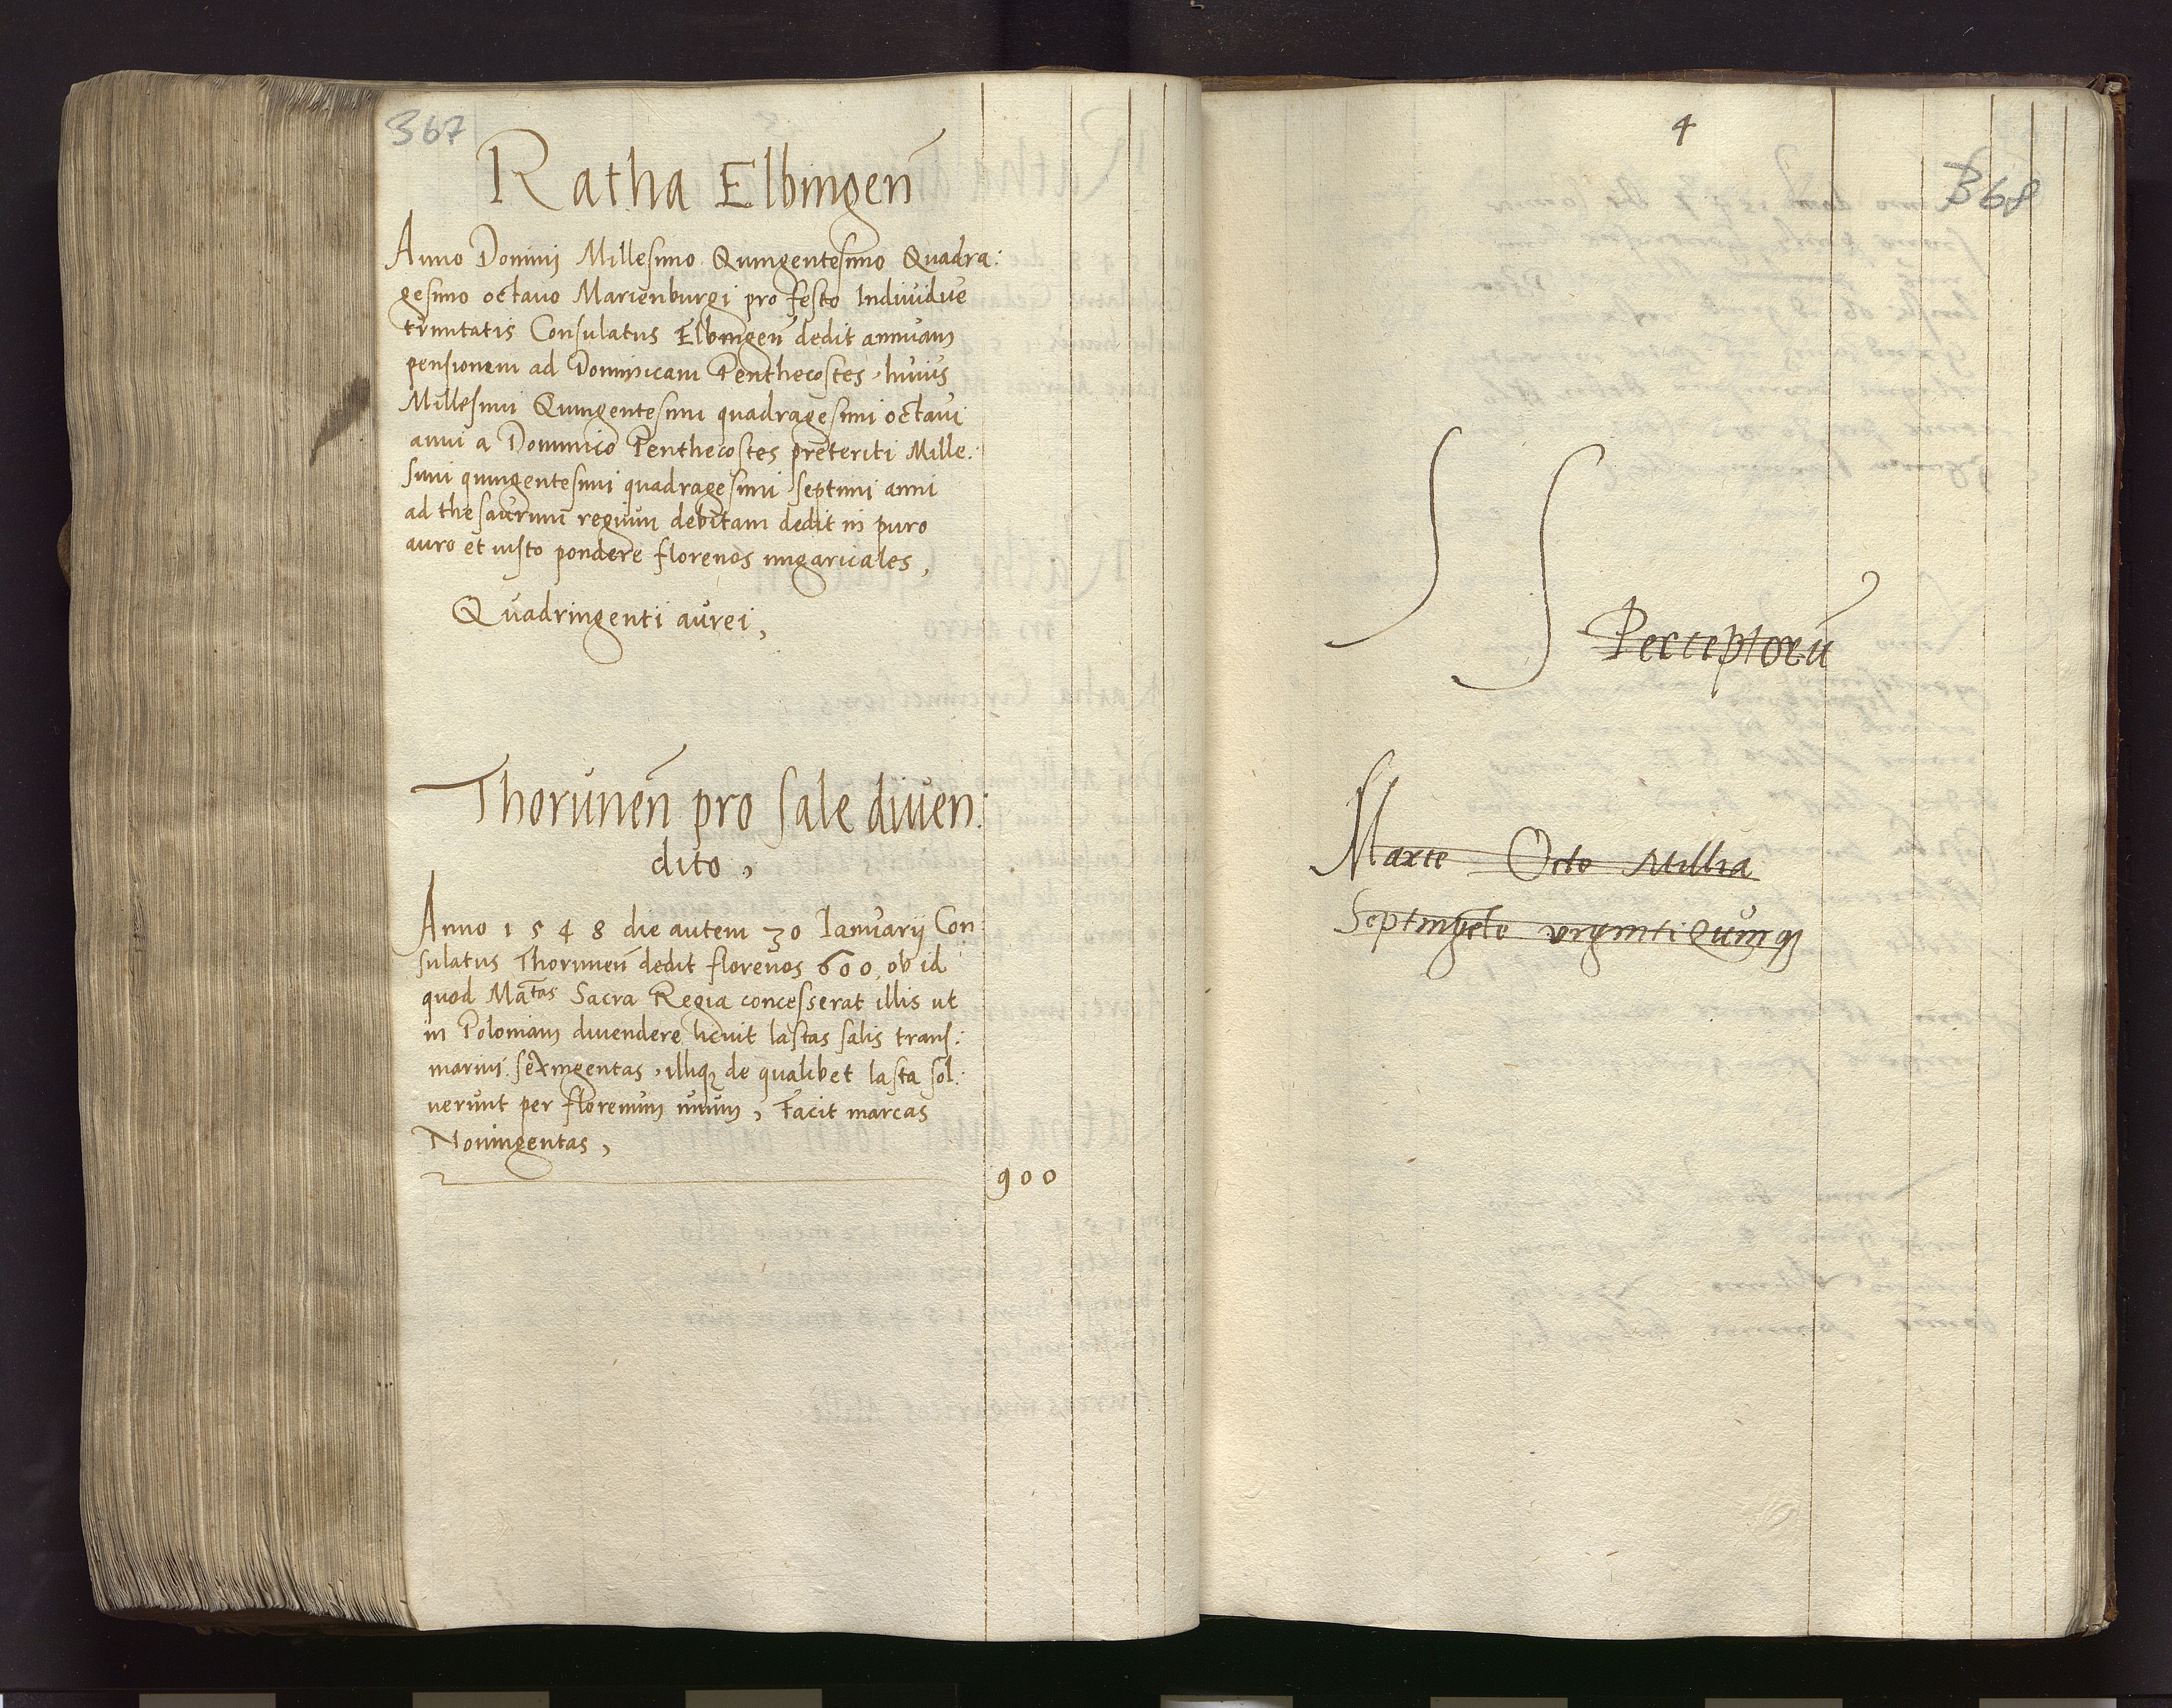 367
Ratha Elbingen̄
Anno Dominij Millesimo Quingentesimo Quadra:
gesimo octauo Marienburgi pro festo Indiuidue
trinitatis Consulatus Elbingen̄ dedit annuam
pensionem ad Dominicam Penthecostes, huius
Millesimi Quingentesimi quadragesimi octaui
anni a Dominico Penthecostes preteriti Mille:
simi quingentesimi quadragesimi septimi anni
ad thesaurum regium debitam dedit in puro
auro et iusto pondere florenos ungaricales,
Quadringenti aurei,
Thorunen̄ pro sale diuen:
dito,
Anno 1548 die autem 30 Ianuarij Con:
sulatus Thorunen̄ dedit florenos 600, ob id
quod Matas Sacra Regia concesserat illis ut
in Poloniam diuendere licuit lastas salis trans:
marini sexingentas, illiqꝫ de qualibet lasta sol:
uerunt per florenum unum, Facit marcas
Noningentas,
900
4
368
SS
Perceptorū
Marce Octo Millia
Septingēte viginti Quinqꝫ